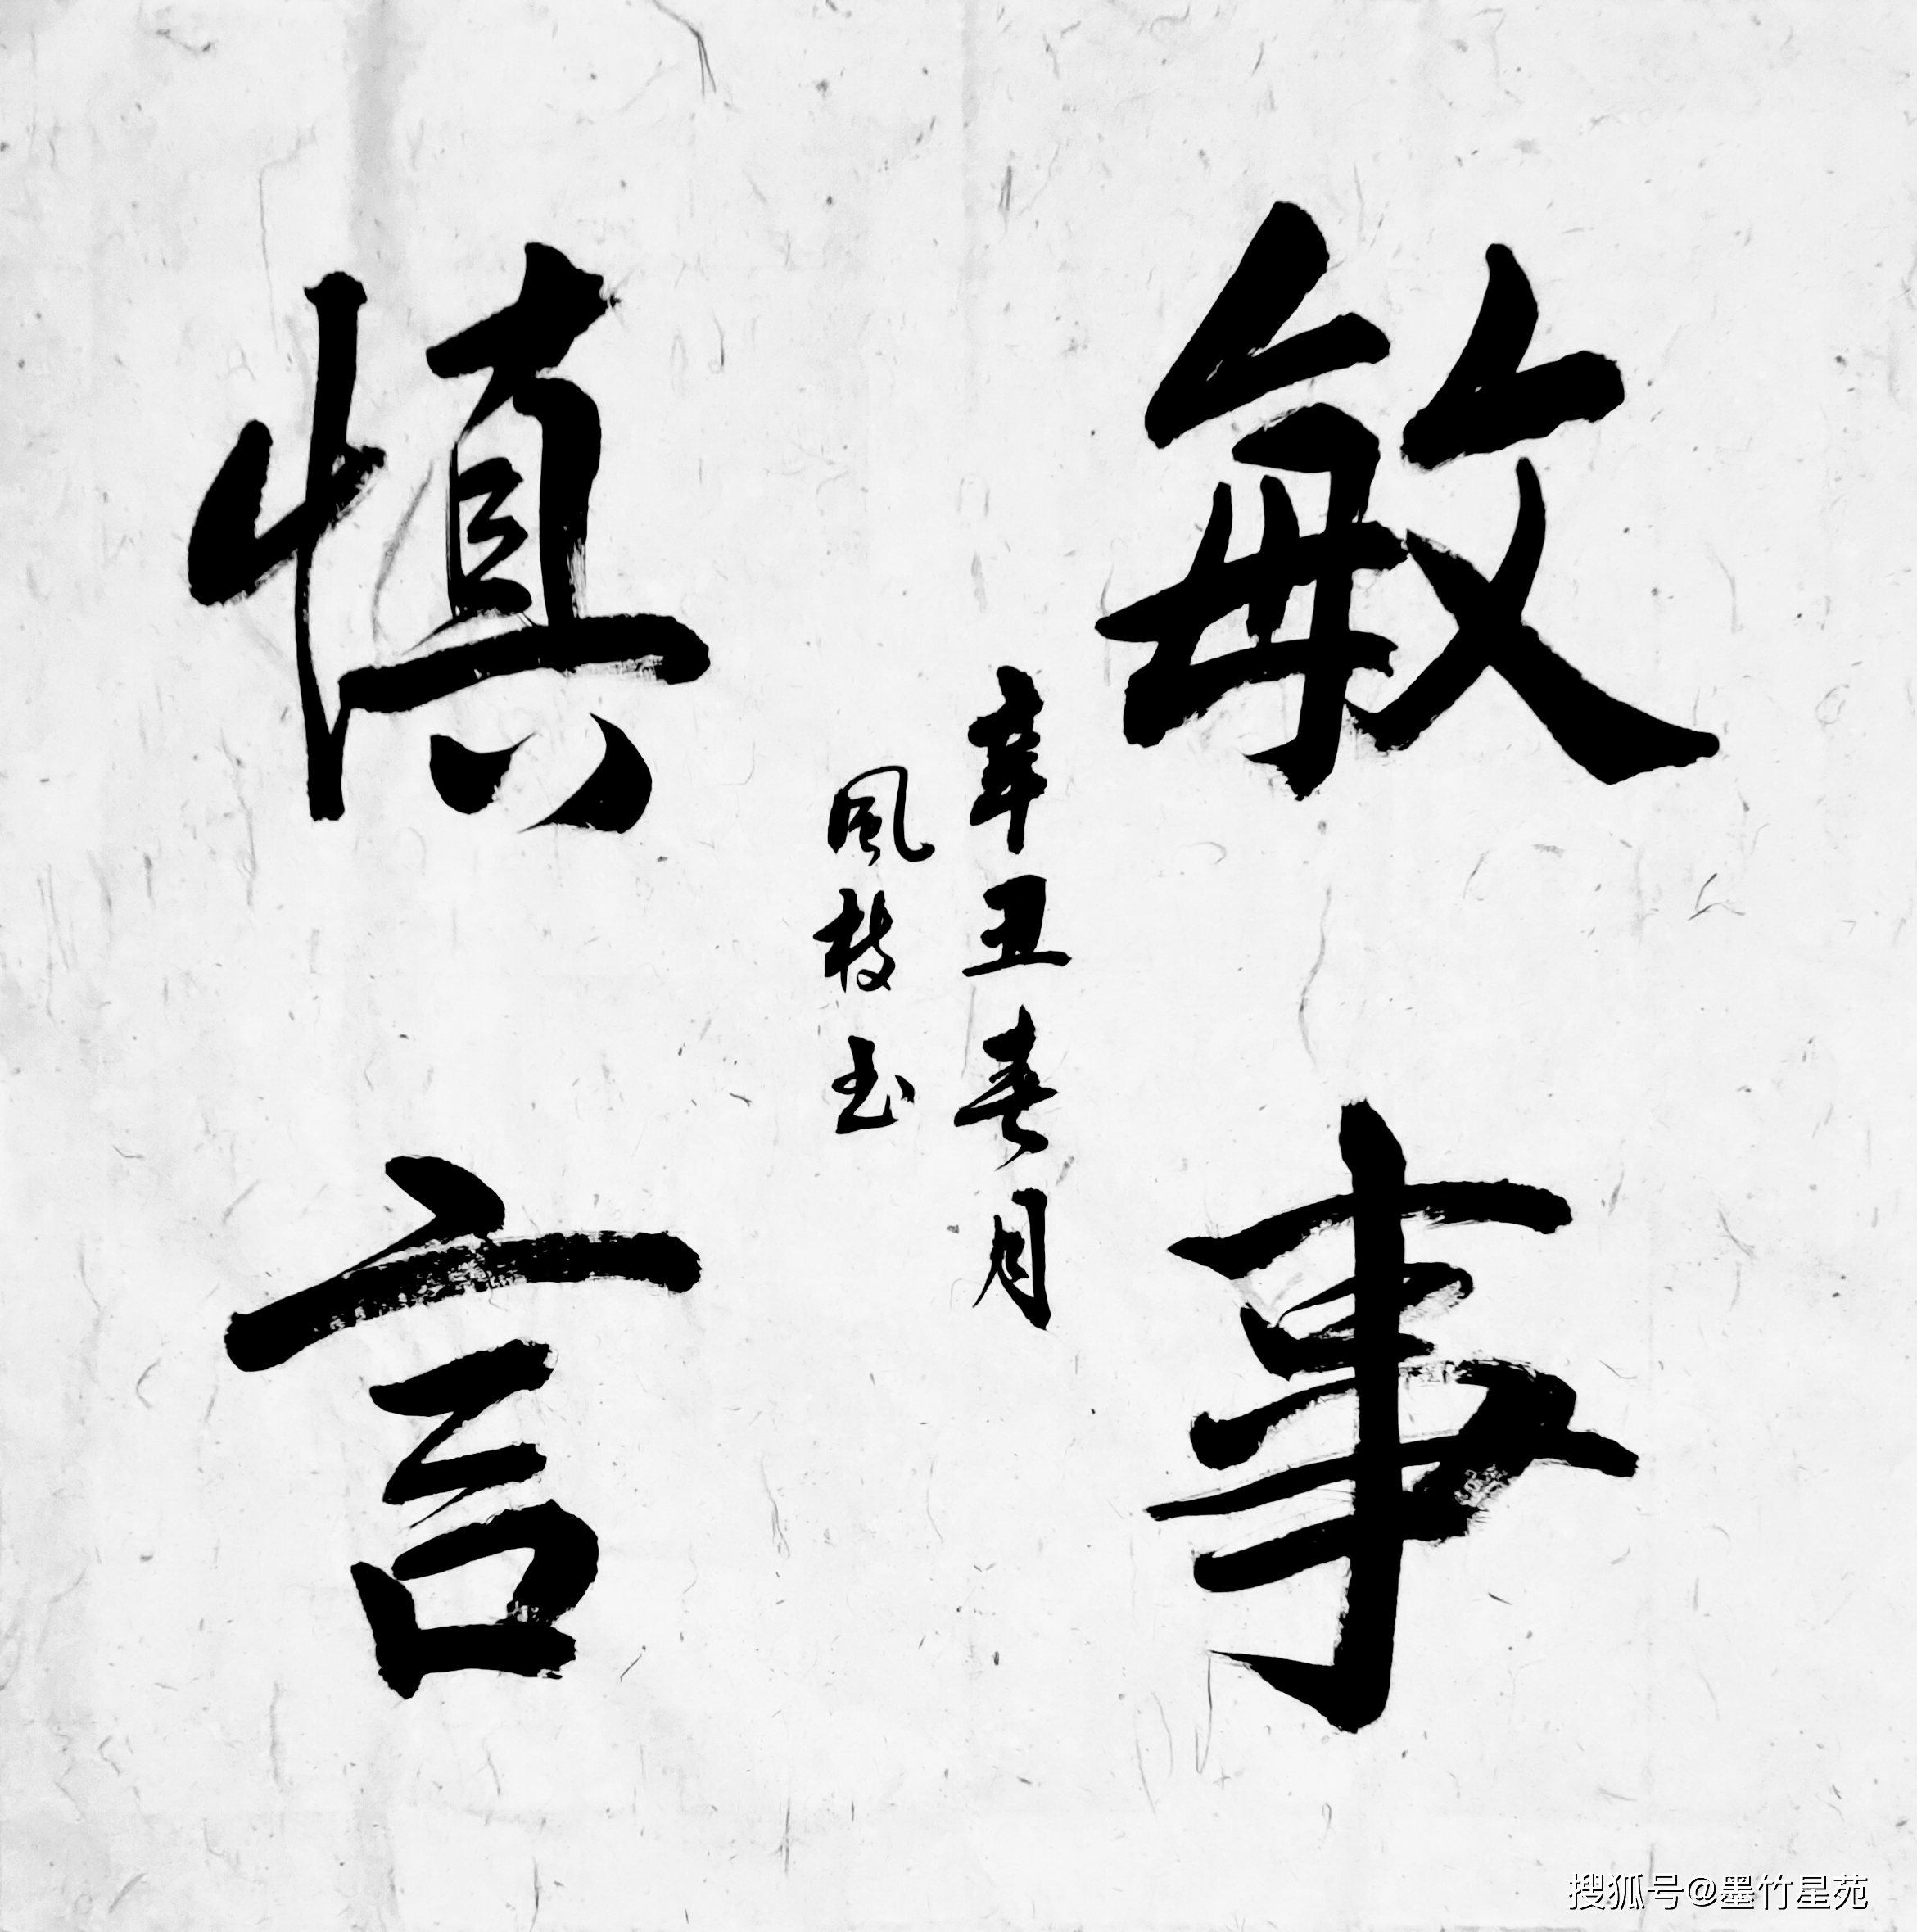 敏事
慎言
辛丑春月
風枝玉
搜狐号@墨竹星苑